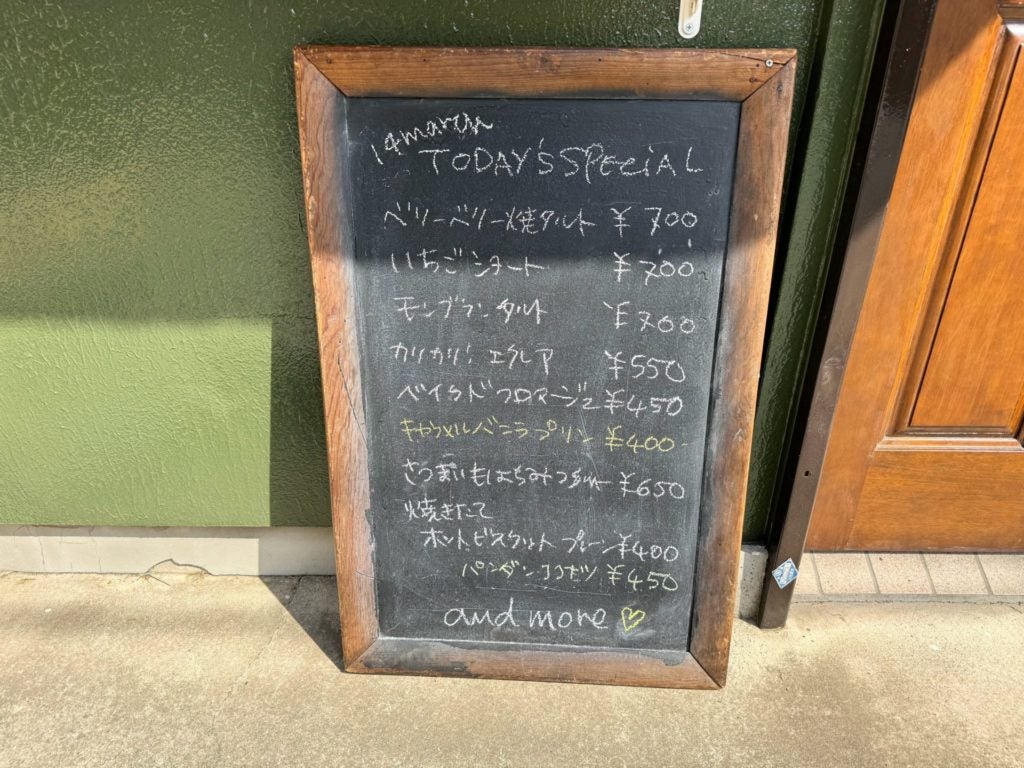 14 march
TODAY'S SPECiAL
ベリーベリー焼タルト ¥700
いちごショート ¥700
モンブランタルト ¥700
カリカリ エクレア ¥550
ベイクドフロマージュ ¥450
キャラメルバニラプリン ¥400
さつまいもはちみつタルト ¥650
焼きたて
ホットビスケット プレーン ¥400
パンダンココナツ ¥450
and more